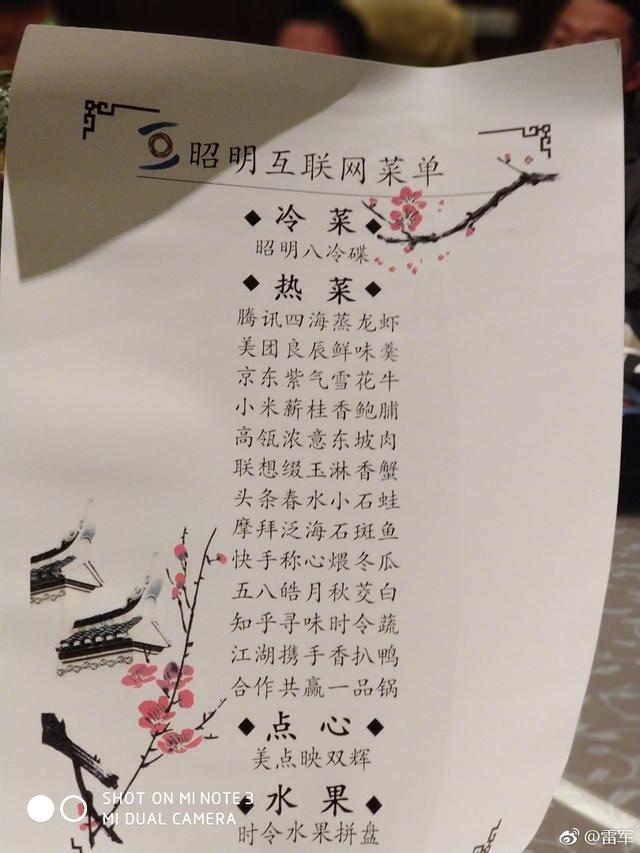 昭明互联网菜单
◆冷菜◆
昭明八冷碟
◆热菜◆
腾讯四海蒸龙虾
美团良辰鲜味羹
京东紫气雪花牛
小米薪桂香鲍脯
高瓴浓意东坡肉
联想缀玉淋香蟹
头条春水小石蛙
摩拜泛海石斑鱼
快手称心煨冬瓜
五八皓月秋茭白
知乎寻味时令蔬
江湖携手香扒鸭
合作共赢一品锅
◆点心◆
美点映双辉
◆水果◆
时令水果拼盘
SHOT ON MI NOTE 3
MI DUAL CAMERA
@雷军